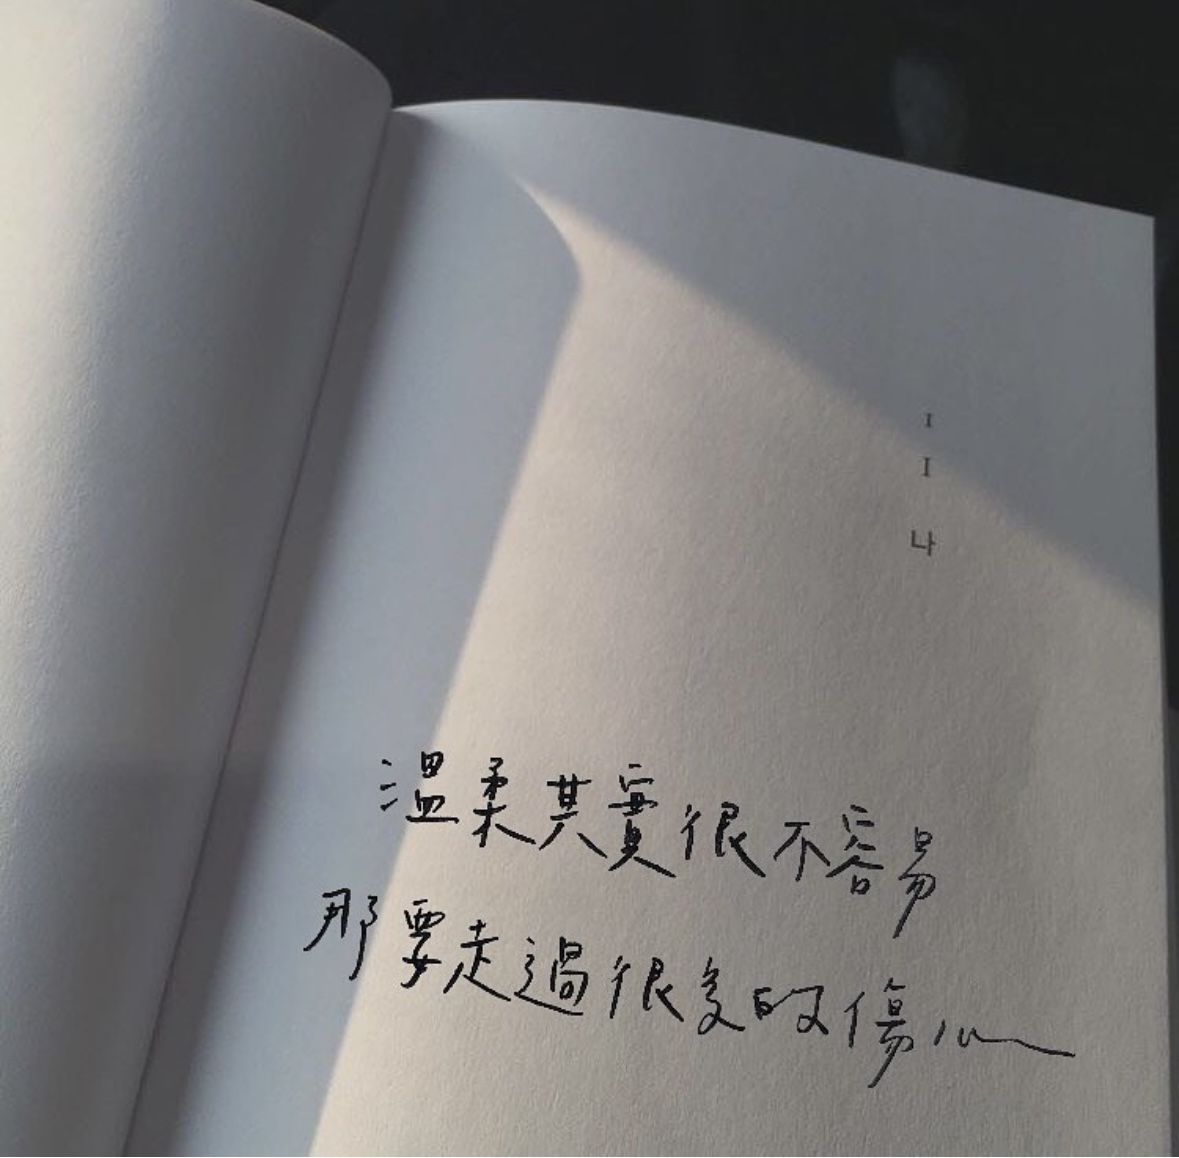 I
I
나
溫柔其實很不容易
那要走過很多的傷心